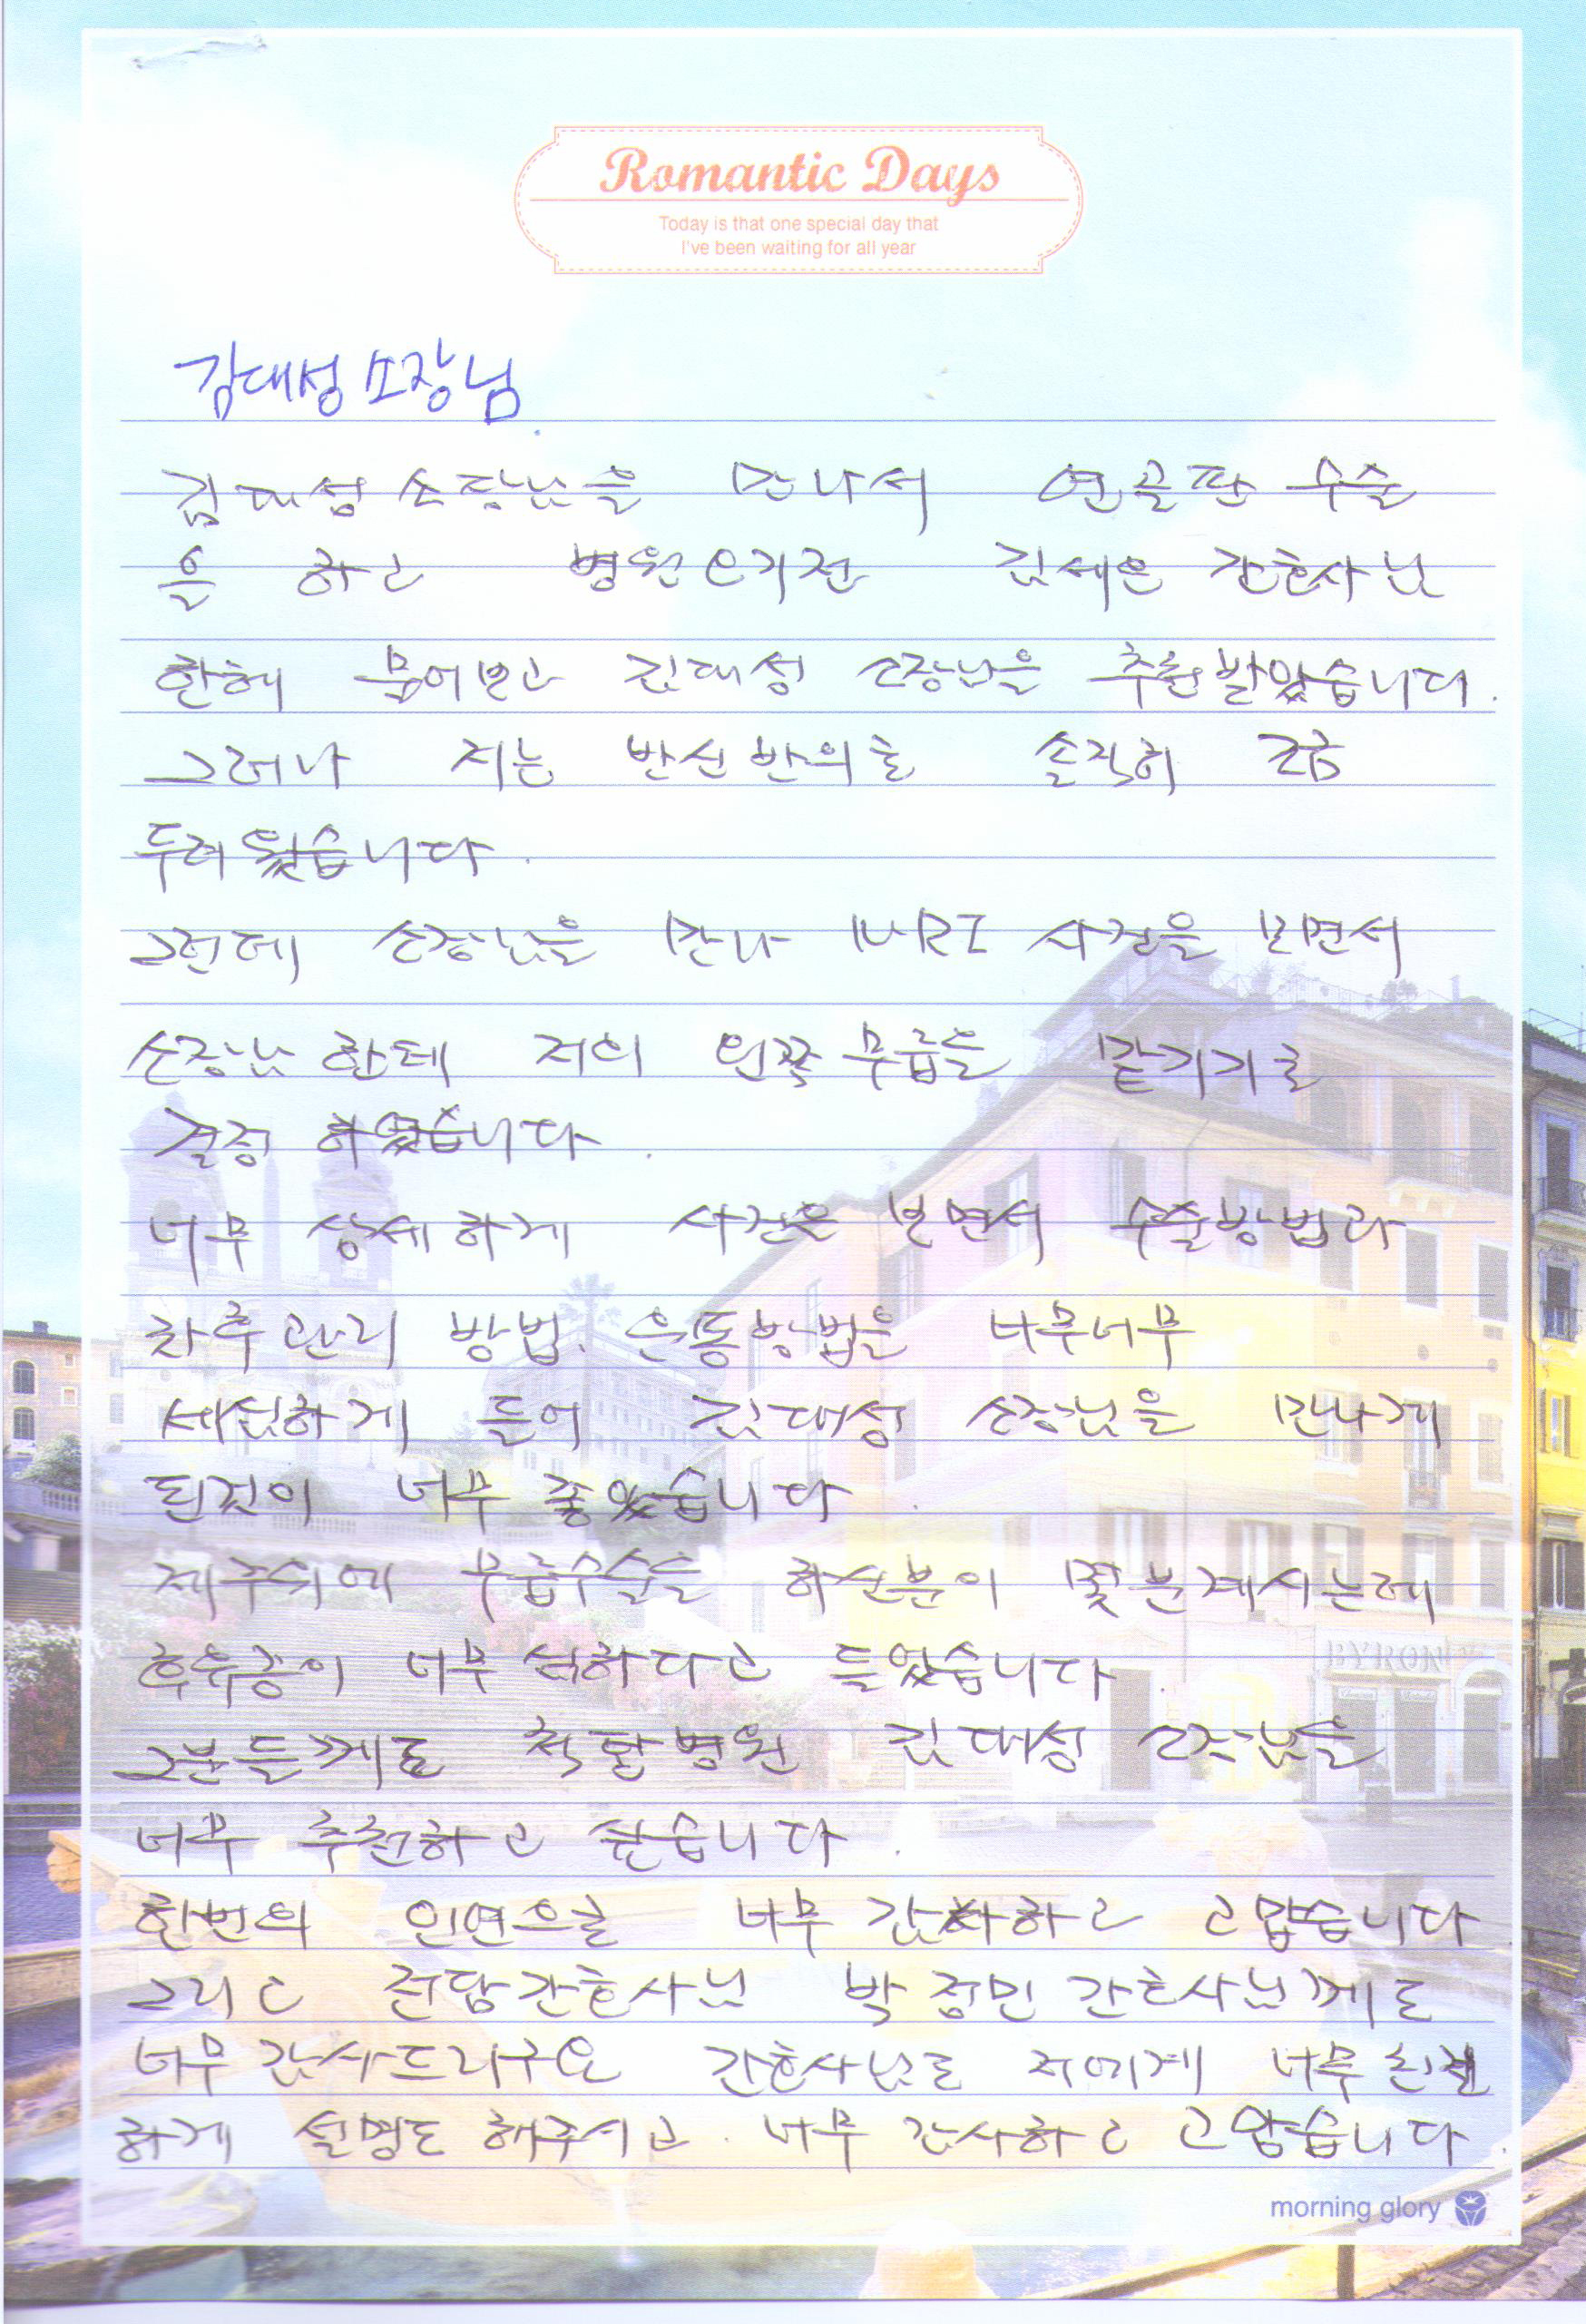 Romantic Days
Today is that one special day that
I've been waiting for all year
김대성 소장님
김대성 소장님을 만나서 연골판 수술
을 하고 병원 오기전 김세은 간호사님
한테 물어보고 김대성 소장님을 추천받았습니다.
그러나 저는 반신반의로 솔직히 조금
두려웠습니다.
그런데 소장님을 만나 MRI 사진을 보면서
소장님한테 저의 왼쪽무릎을 맡기기로
결정 하였습니다.
너무 상세하게 사진을 보면서 수술방법과
차후관리 방법, 운동방법을 너무너무
세심하게 들어 김대성 소장님을 만나게
된것이 너무 좋았습니다.
제주위에 무릎수술을 하신분이 몇분계시는데
후유증이 너무 심하다고 들었습니다.
그분들께도 착한병원 김대성 소장님을
너무 추천하고 싶습니다.
한번의 인연으로 너무 감사하고 고맙습니다
그리고 전담간호사님 박정민 간호사님께도
너무 감사드리구요 간호사님도 저에게 너무 친절
하게 설명도 해주시고. 너무 감사하고 고맙습니다.
morning glory